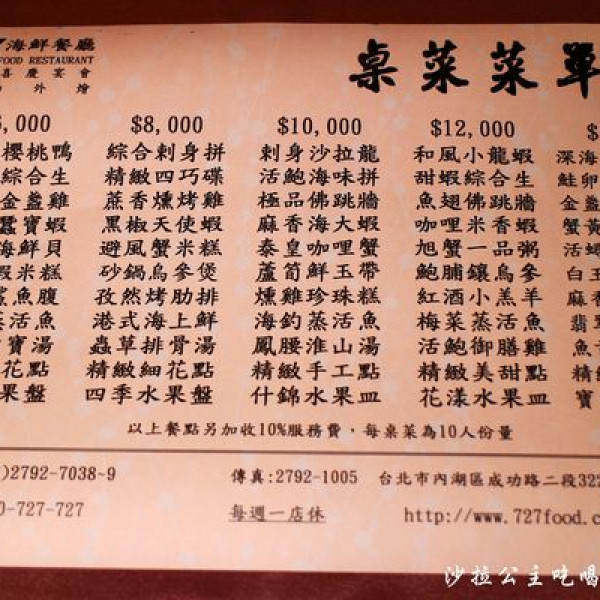 7海鮮餐廳
FOOD RESTAURANT
喜慶宴會
外燴
桌菜菜單
,000 $8,000 $10,000 $12,000 $
櫻桃鴨 綜合刺身拼 刺身沙拉龍 和風小龍蝦 深海
綜合生 精緻四巧碟 活鮑海味拼 甜蝦綜合生 鮭卵
金盞雞 蔗香燻烤雞 極品佛跳牆 魚翅佛跳牆 金盞
寶蝦 黑椒天使蝦 麻香海大蝦 咖哩米香蝦 蟹黃
海鮮貝 避風蟹米糕 泰皇咖哩蟹 旭蟹一品粥 活
蝦米糕 砂鍋烏參煲 蘆筍鮮玉帶 鮑脯鑲烏參 白玉
魚腹 孜然烤肋排 燻雞珍珠糕 紅酒小羔羊 麻香
蒸活魚 港式海上鮮 海釣蒸活魚 梅菜蒸活魚 翡
寶湯 蟲草排骨湯 鳳腰淮山湯 活鮑御膳雞 魚
花點 精緻細花點 精緻手工點 精緻美甜點 精緻
果盤 四季水果盤 什錦水果皿 花漾水果皿 寶
以上餐點另加收10%服務費，每桌菜為10人份量
)2792-7038~9 傳真:2792-1005 台北市內湖區成功路二段322
0-727-727 每週一店休 http://www.727food.c
沙拉公主吃喝